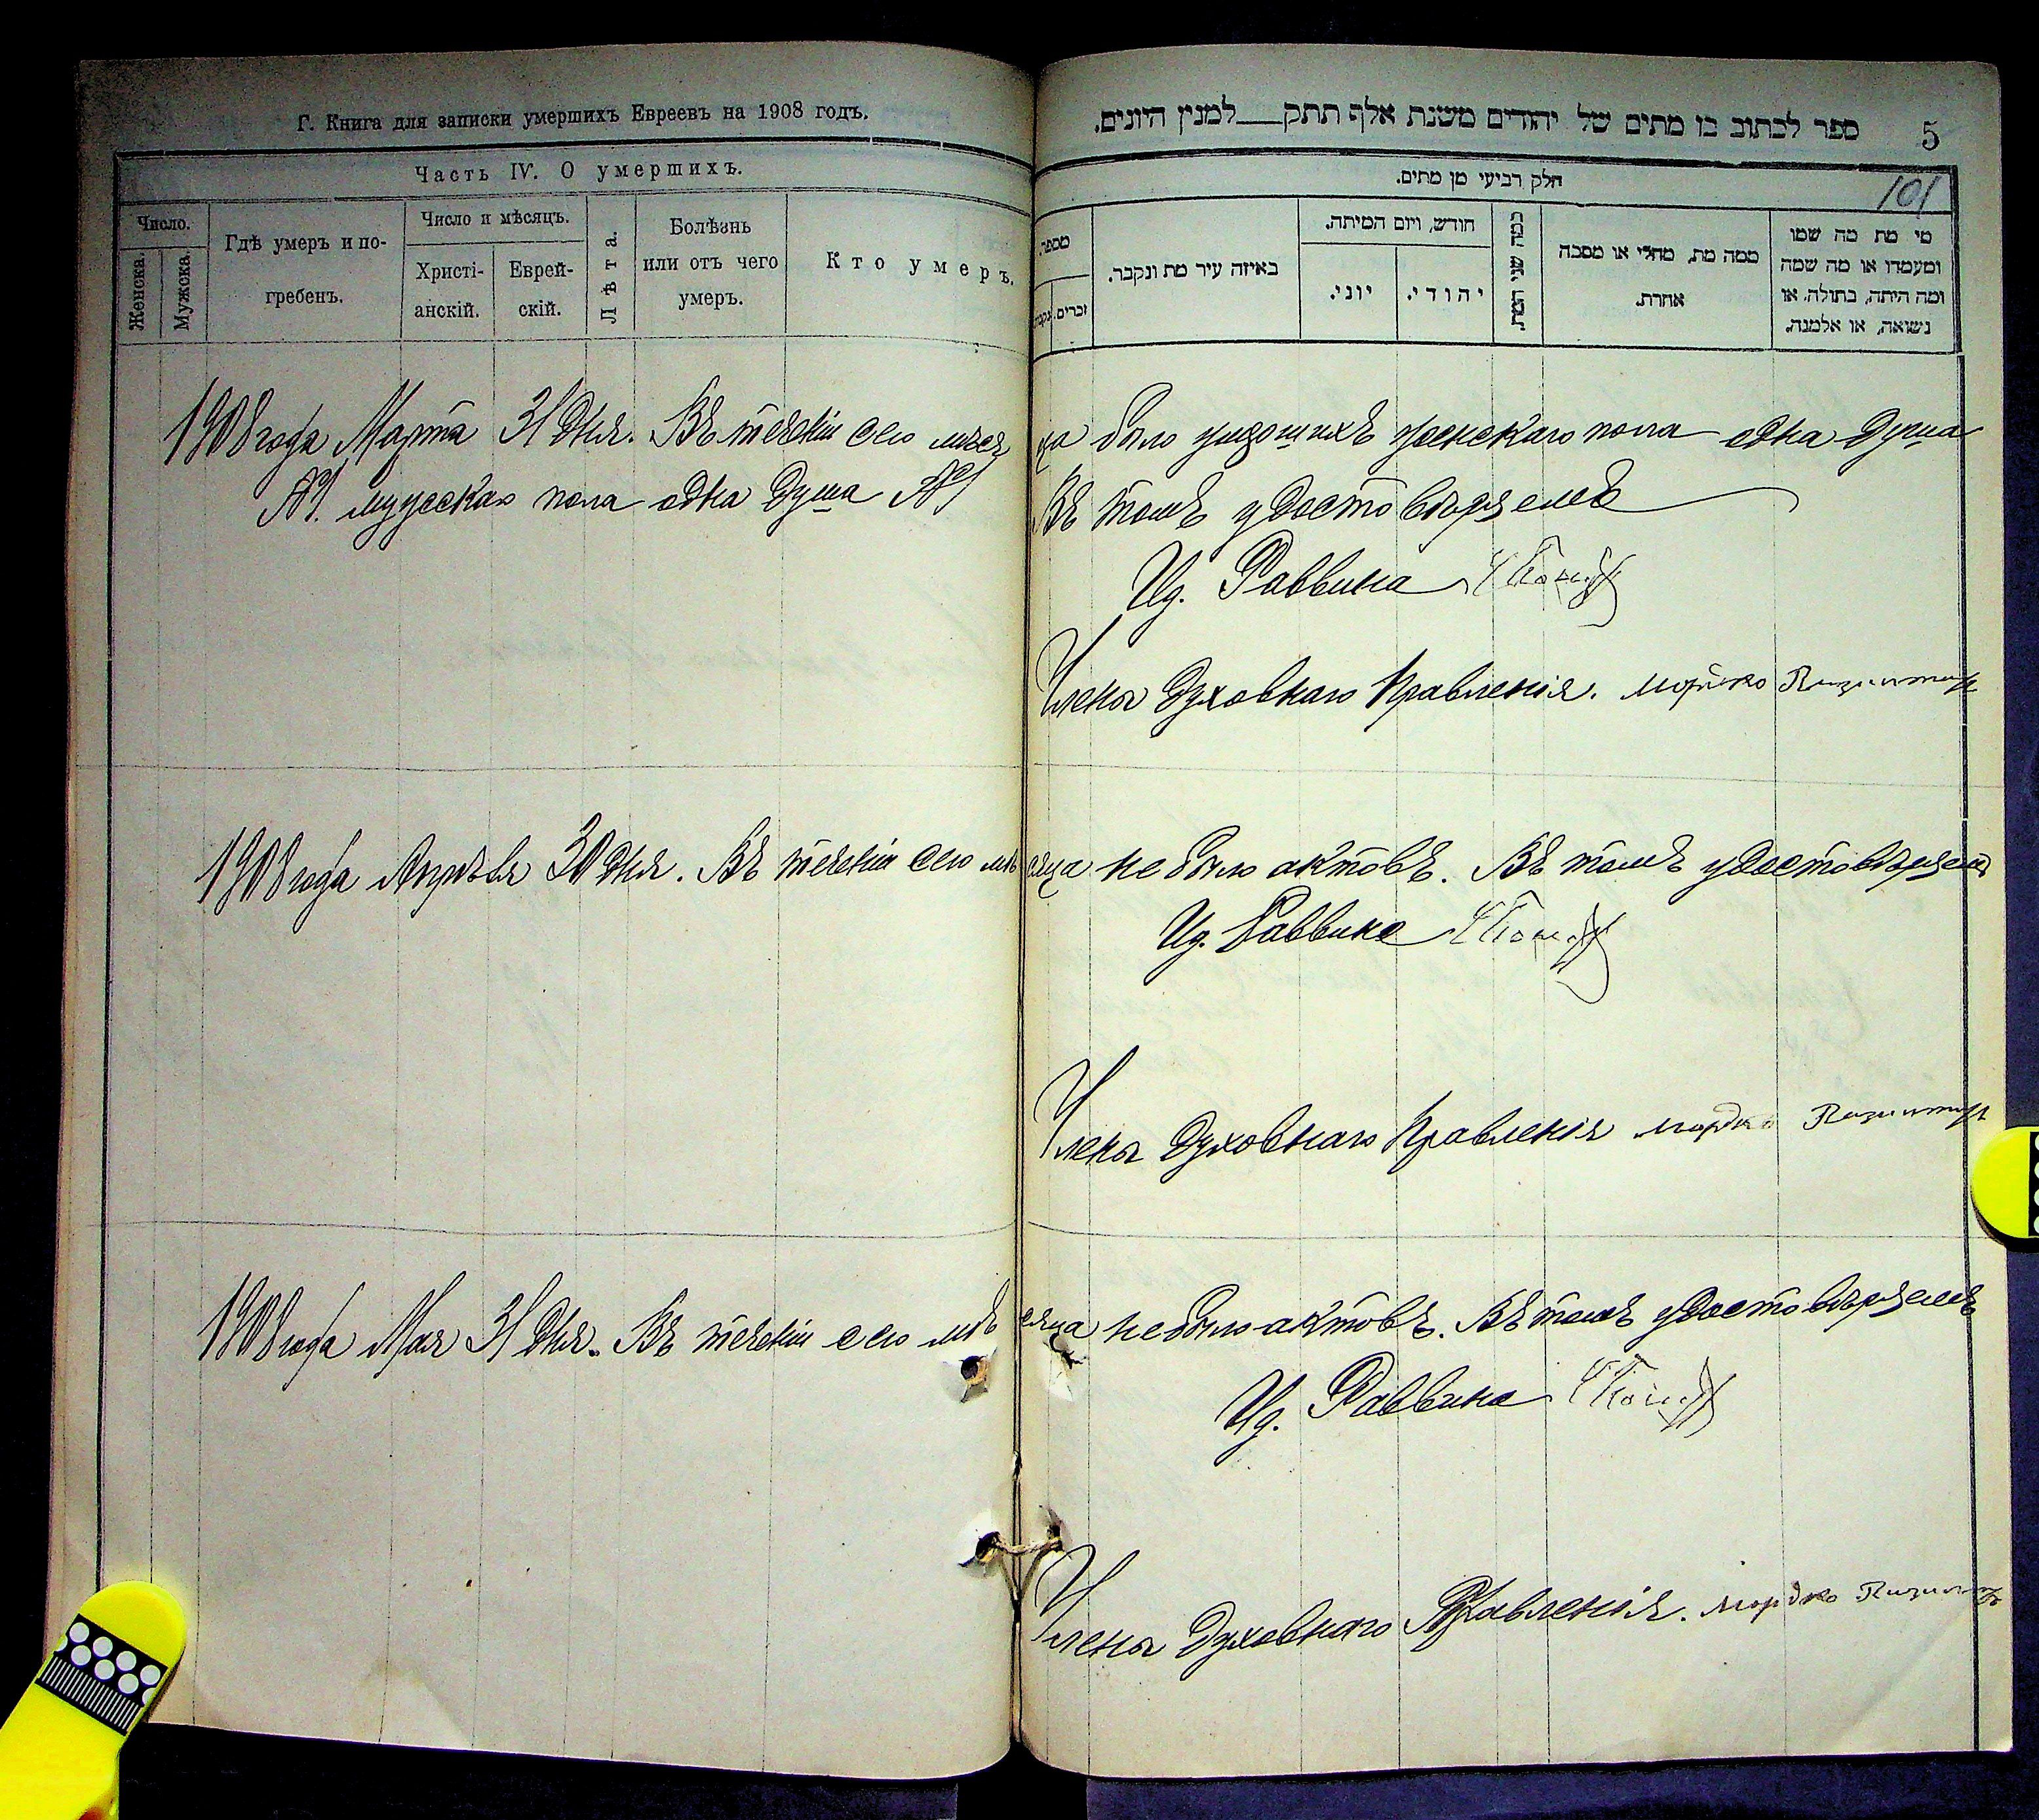 Г. Книга для записки умершихъ Евреевъ на 1908 годъ.
Часть IV. О умершихъ.
Число.
Женска.
Мужска.
Гдѣ умеръ и по-
гребенъ.
Число и мѣсяцъ.
Христі-
анскій.
Еврей-
скій.
Лѣта.
Болѣзнь
или отъ чего
умеръ.
Кто умеръ.
ספר לכתוב בו מתים של יהודים משנת אלף תתק___למנין היונים.
5
חלק רביעי מן מתים.
101
מספר.
זכרים.
נקבות
באיזה עיר מת ונקבר.
חודש, ויום המיתה.
יוני.
יהודי.
כמה שני המת.
ממה מת, מחלי או מסבה
אחרת.
מי מת מה שמו
ומעמדו או מה שמה
ומה היתה, בתולה, או
נשואה, או אלמנה.
1908 года Марта 31 дня. Въ теченіи сего мѣсяца было умершихъ женскаго пола одна душа
№1. мужескаго пола одна душа №1 Въ томъ удостовѣряемъ
Ид. Раввина
Члены Духовнаго Правленія. Мордко
1908 года Апрѣля 30 дня. Въ теченіи сего мѣсяца не было актовъ. Въ томъ удостовѣряемъ
Ид. Раввина
Члены Духовнаго Правленія Мордко
1908 года Мая 31 дня. Въ теченіи сего мѣсяца не было актовъ. Въ томъ удостовѣряемъ
Ид. Раввина
Члены Духовнаго Правленія. Мордко